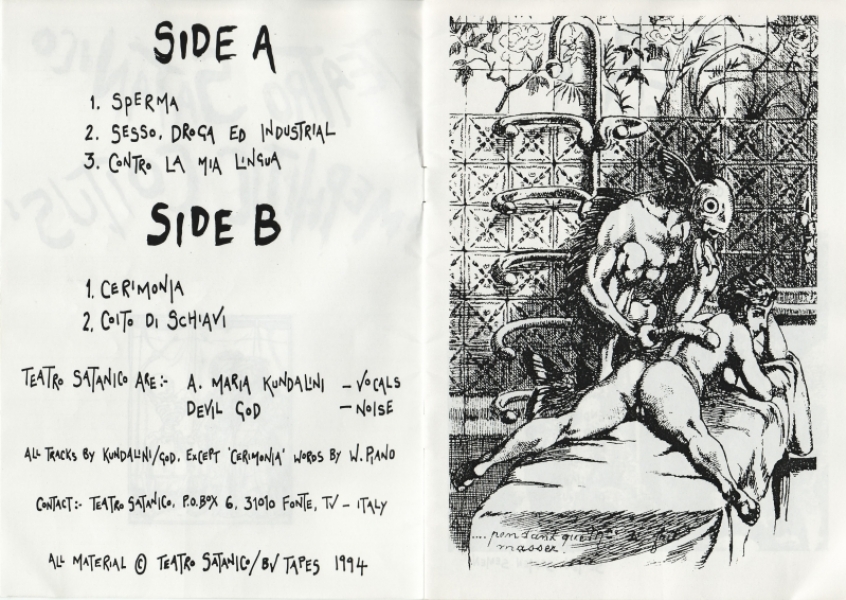 SIDE A
1. SPERMA
2. SESSO, DROGA ED INDUSTRIAL
3. CONTRO LA MIA LINGUA
SIDE B
1. CERIMONIA
2. COITO DI SCHIAVI
TEATRO SATANICO ARE:- A. MARIA KUNDALINI - VOCALS
DEVIL GOD - NOISE
ALL TRACKS BY KUNDALINI/GOD. EXCEPT 'CERIMONIA' WORDS BY W. PIANO
CONTACT:- TEATRO SATANICO, P.O.BOX 6, 31010 FONTE, TV - ITALY
ALL MATERIAL © TEATRO SATANICO/BV TAPES 1994
.... pendant que
masser!